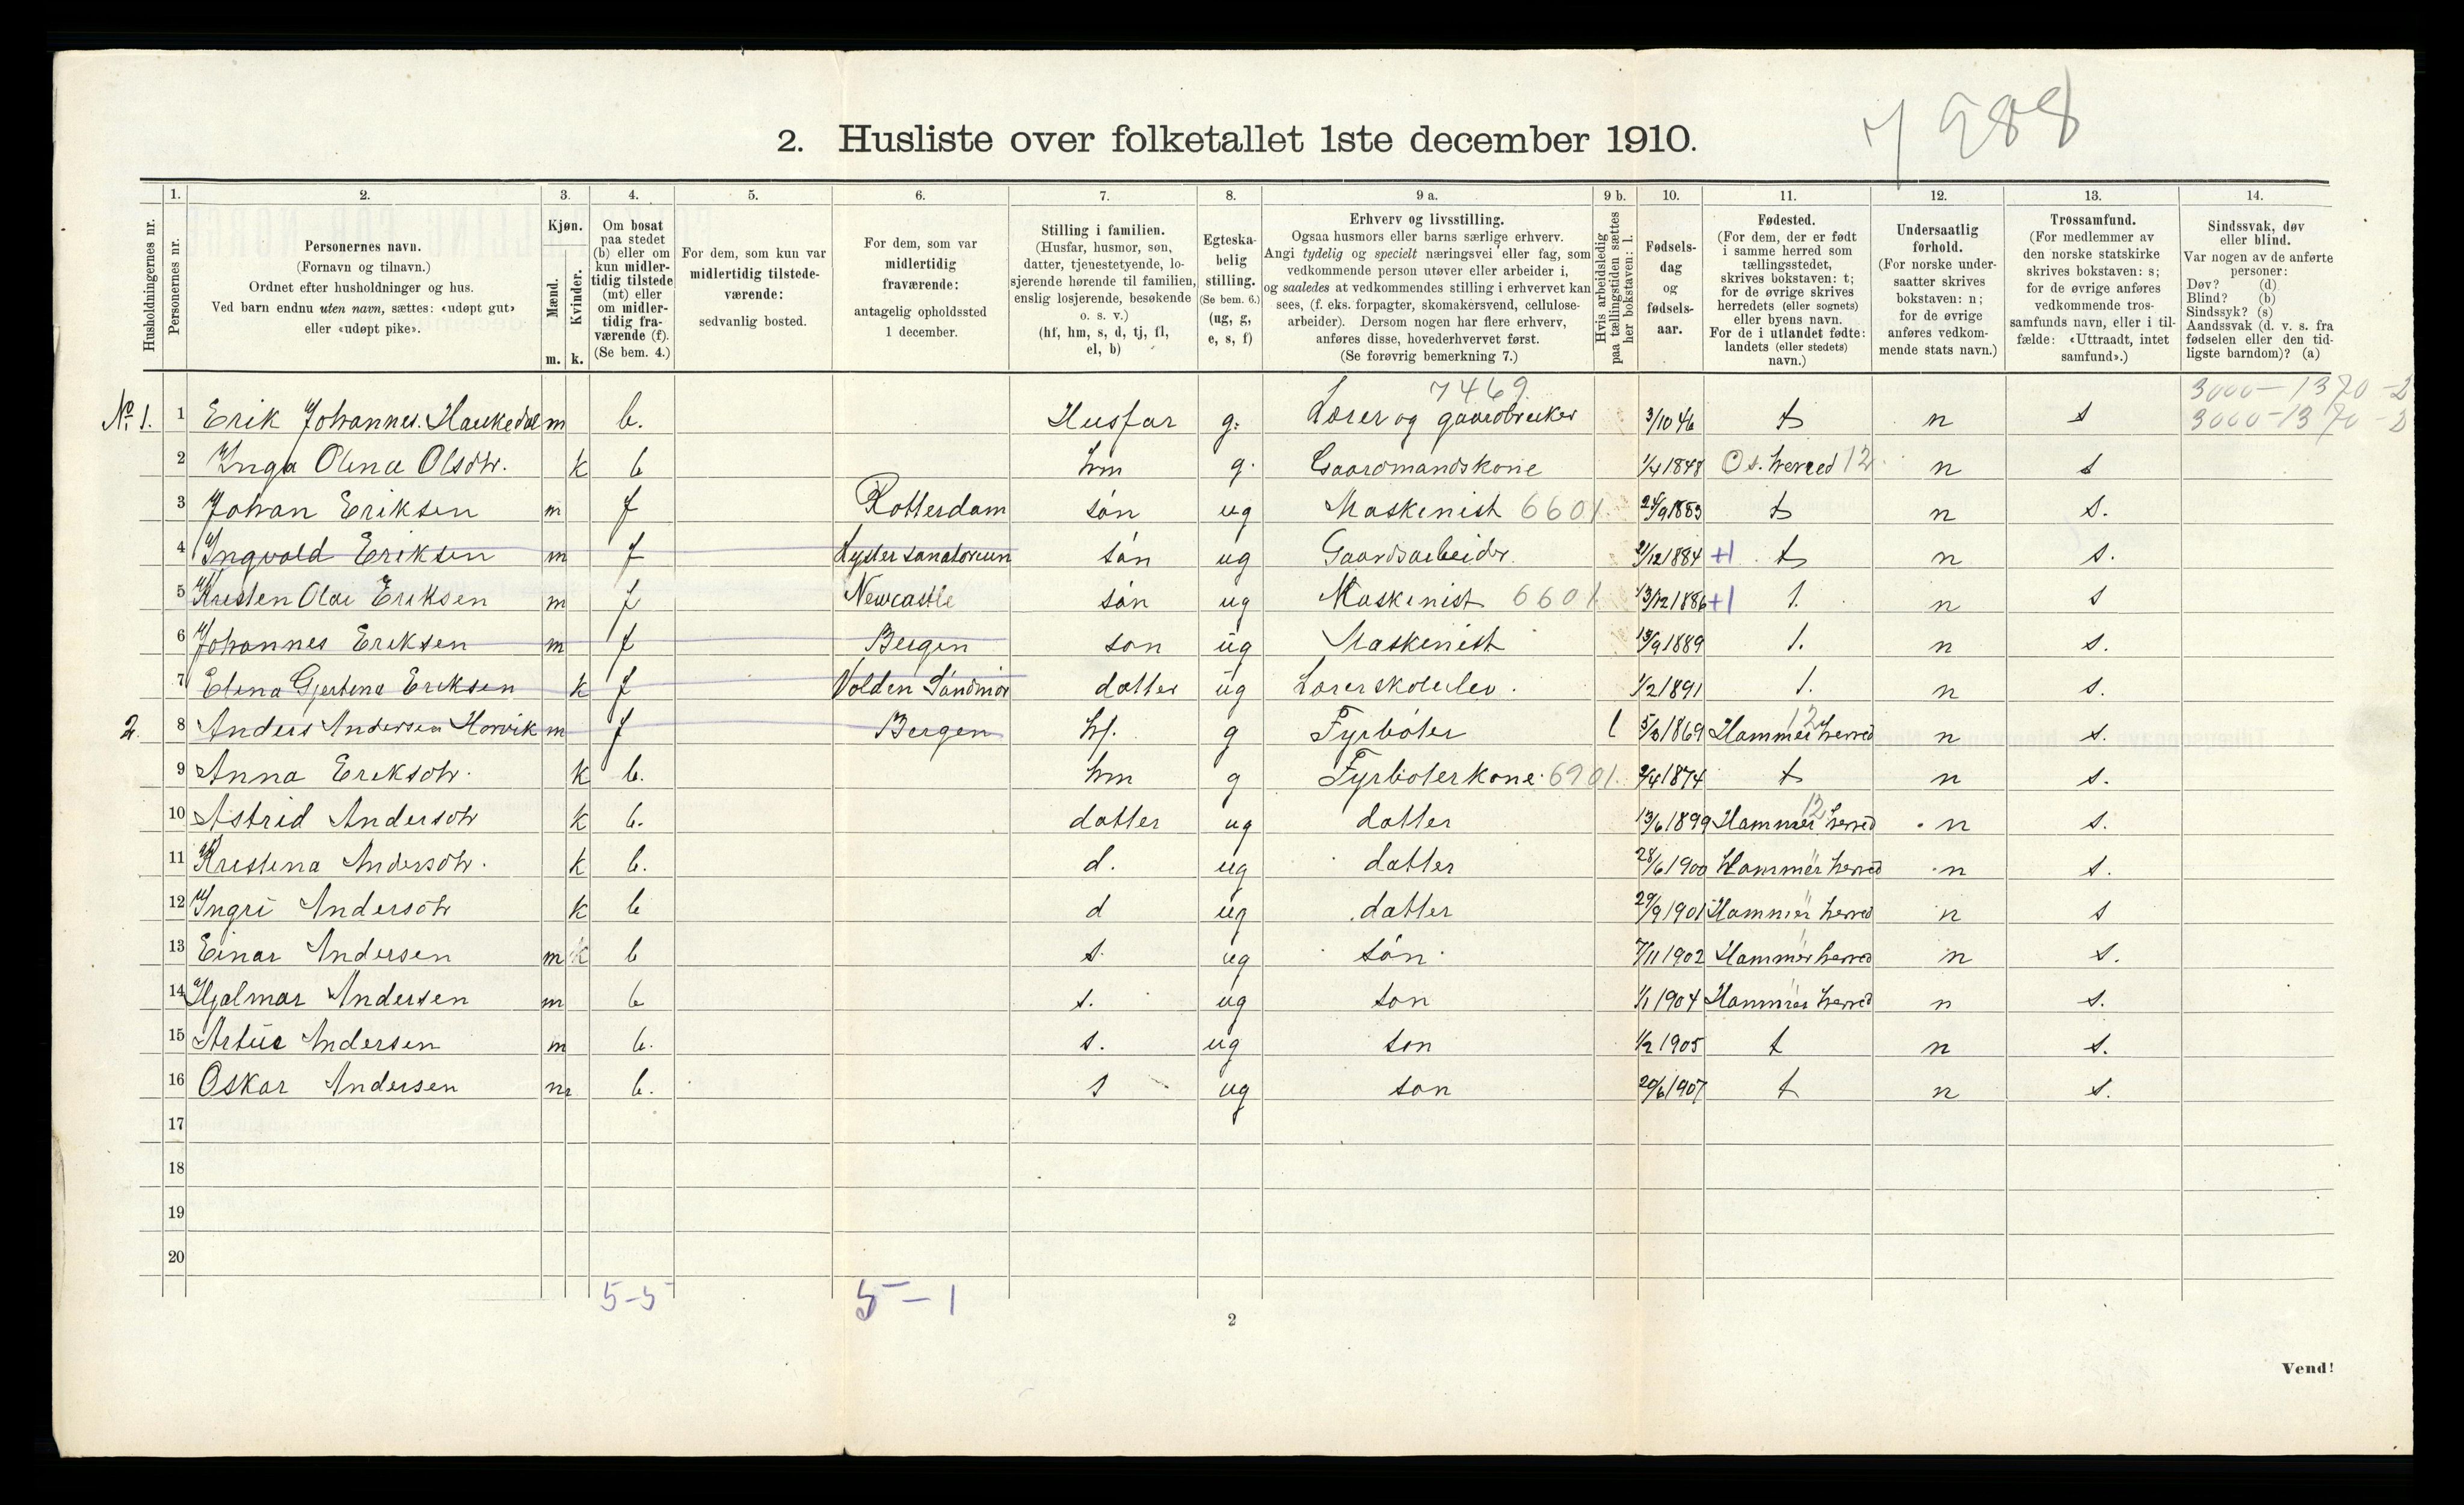 7 988
2. Husliste over folketallet 1ste december 1910.
Husholdningernes nr.
1.
Personernes nr.
2.
Personernes navn.
(Fornavn og tilnavn.)
Ordnet efter husholdninger og hus.
Ved barn endnu uten navn, sættes: «udøpt gut»
eller «udøpt pike».
3.
Kjøn.
Mænd.
m.
Kvinder.
k.
4.
Om bosat
paa stedet
(b) eller om
kun midler-
tidig tilstede
(mt) eller
om midler-
tidig fra-
værende (f).
(Se bem. 4.)
5.
For dem, som kun var
midlertidig tilstede-
værende:
sedvanlig bosted.
6.
For dem, som var
midlertidig
fraværende:
antagelig opholdssted
1 december.
7.
Stilling i familien.
(Husfar, husmor, søn,
datter, tjenestetyende, lo-
sjerende hørende til familien,
enslig losjerende, besøkende
o. s. v.)
(hf, hm, s, d, tj, fl,
el, b)
8.
Egteska-
belig
stilling.
(Se bem. 6.)
(ug, g,
e, s, f)
9 a.
Erhverv og livsstilling.
Ogsaa husmors eller barns særlige erhverv.
Angi tydelig og specielt næringsvei eller fag, som
vedkommende person utøver eller arbeider i,
og saaledes at vedkommendes stilling i erhvervet kan
sees, (f. eks. forpagter, skomakersvend, cellulose-
arbeider). Dersom nogen har flere erhverv,
anføres disse, hovederhvervet først.
(Se forøvrig bemerkning 7.)
9 b.
Hvis arbeidsledig
paa tællingstiden sættes
her bokstaven: l.
10.
Fødsels-
dag
og
fødsels-
aar.
11.
Fødested.
(For dem, der er født
i samme herred som
tællingsstedet,
skrives bokstaven: t;
for de øvrige skrives
herredets (eller sognets)
eller byens navn.
For de i utlandet fødte:
landets (eller stedets)
navn.)
12.
Undersaatlig
forhold.
(For norske under-
saatter skrives
bokstaven: n;
for de øvrige
anføres vedkom-
mende stats navn.)
13.
Trossamfund.
(For medlemmer av
den norske statskirke
skrives bokstaven: s;
for de øvrige anføres
vedkommende tros-
samfunds navn, eller i til-
fælde: «Uttraadt, intet
samfund».)
14.
Sindssvak, døv
eller blind.
Var nogen av de anførte
personer:
Døv? (d)
Blind? (b)
Sindssyk? (s)
Aandssvak (d. v. s. fra
fødselen eller den tid-
ligste barndom)? (a)
7469 3000-1370-2
No 1. 1 Erik Johannes. Haukedal m b. Husfar g. Lærer og gaardbruker 3/10 46 t n s 3000-1370-2
2 Inga Olena Olsdtr. k b hm g. Gaardmandskone 1/4 1848 Os. herred 12 n s
3 Johan Eriksen m f Rotterdam sön ug Maskinist 6601. 24/9 1883 t n s.
4 Ingvald Eriksen m f Lyster sanatorium sön ug Gaardsarbeider. 21/12 1884 +1 t n s.
5 Kristen Olai Eriksen m f Newcastle sön ug Maskinist 6601. 13/12 1886 +1 t. n s
6 Johannes Eriksen m f Bergen son ug Maskinist 13/9 1889 t. n s.
7 Elena Gjertina Eriksen k f Volden Söndmör datter ug Lærerskoleelev. 1/2 1891 t. n s.
2. 8 Anders Andersen Horvik m f Bergen hf. g Fyrböter l 5/8 1869 Hammer herred 12 n s.
9 Anna Eriksdtr. k b. hm g Fyrböterkone. 6901. 2/4 1874 t n s.
10 Astrid Andersdtr k b. datter ug datter 13/6 1899 Hammer herred 12 n s.
11 Kristina Andersdtr. k b. d. ug datter 28/6 1900 Hammer herred n s.
12 Ingri Andersdtr k b d ug datter 29/9 1901 Hammer herred n s
13 Einar Andersen m k b s. ug sön 7/11 1902 Hammer herred n s.
14 Hjalmar Andersen m b s. ug son 1/1 1904 Hammer herred n s.
15 Artur Andersen m b. s. ug son 1/2 1905 t n s.
16 Oskar Andersen m b. s ug son 20/6 1907 t n s.
17
18
19
20
5-5 5-1
2
Vend!